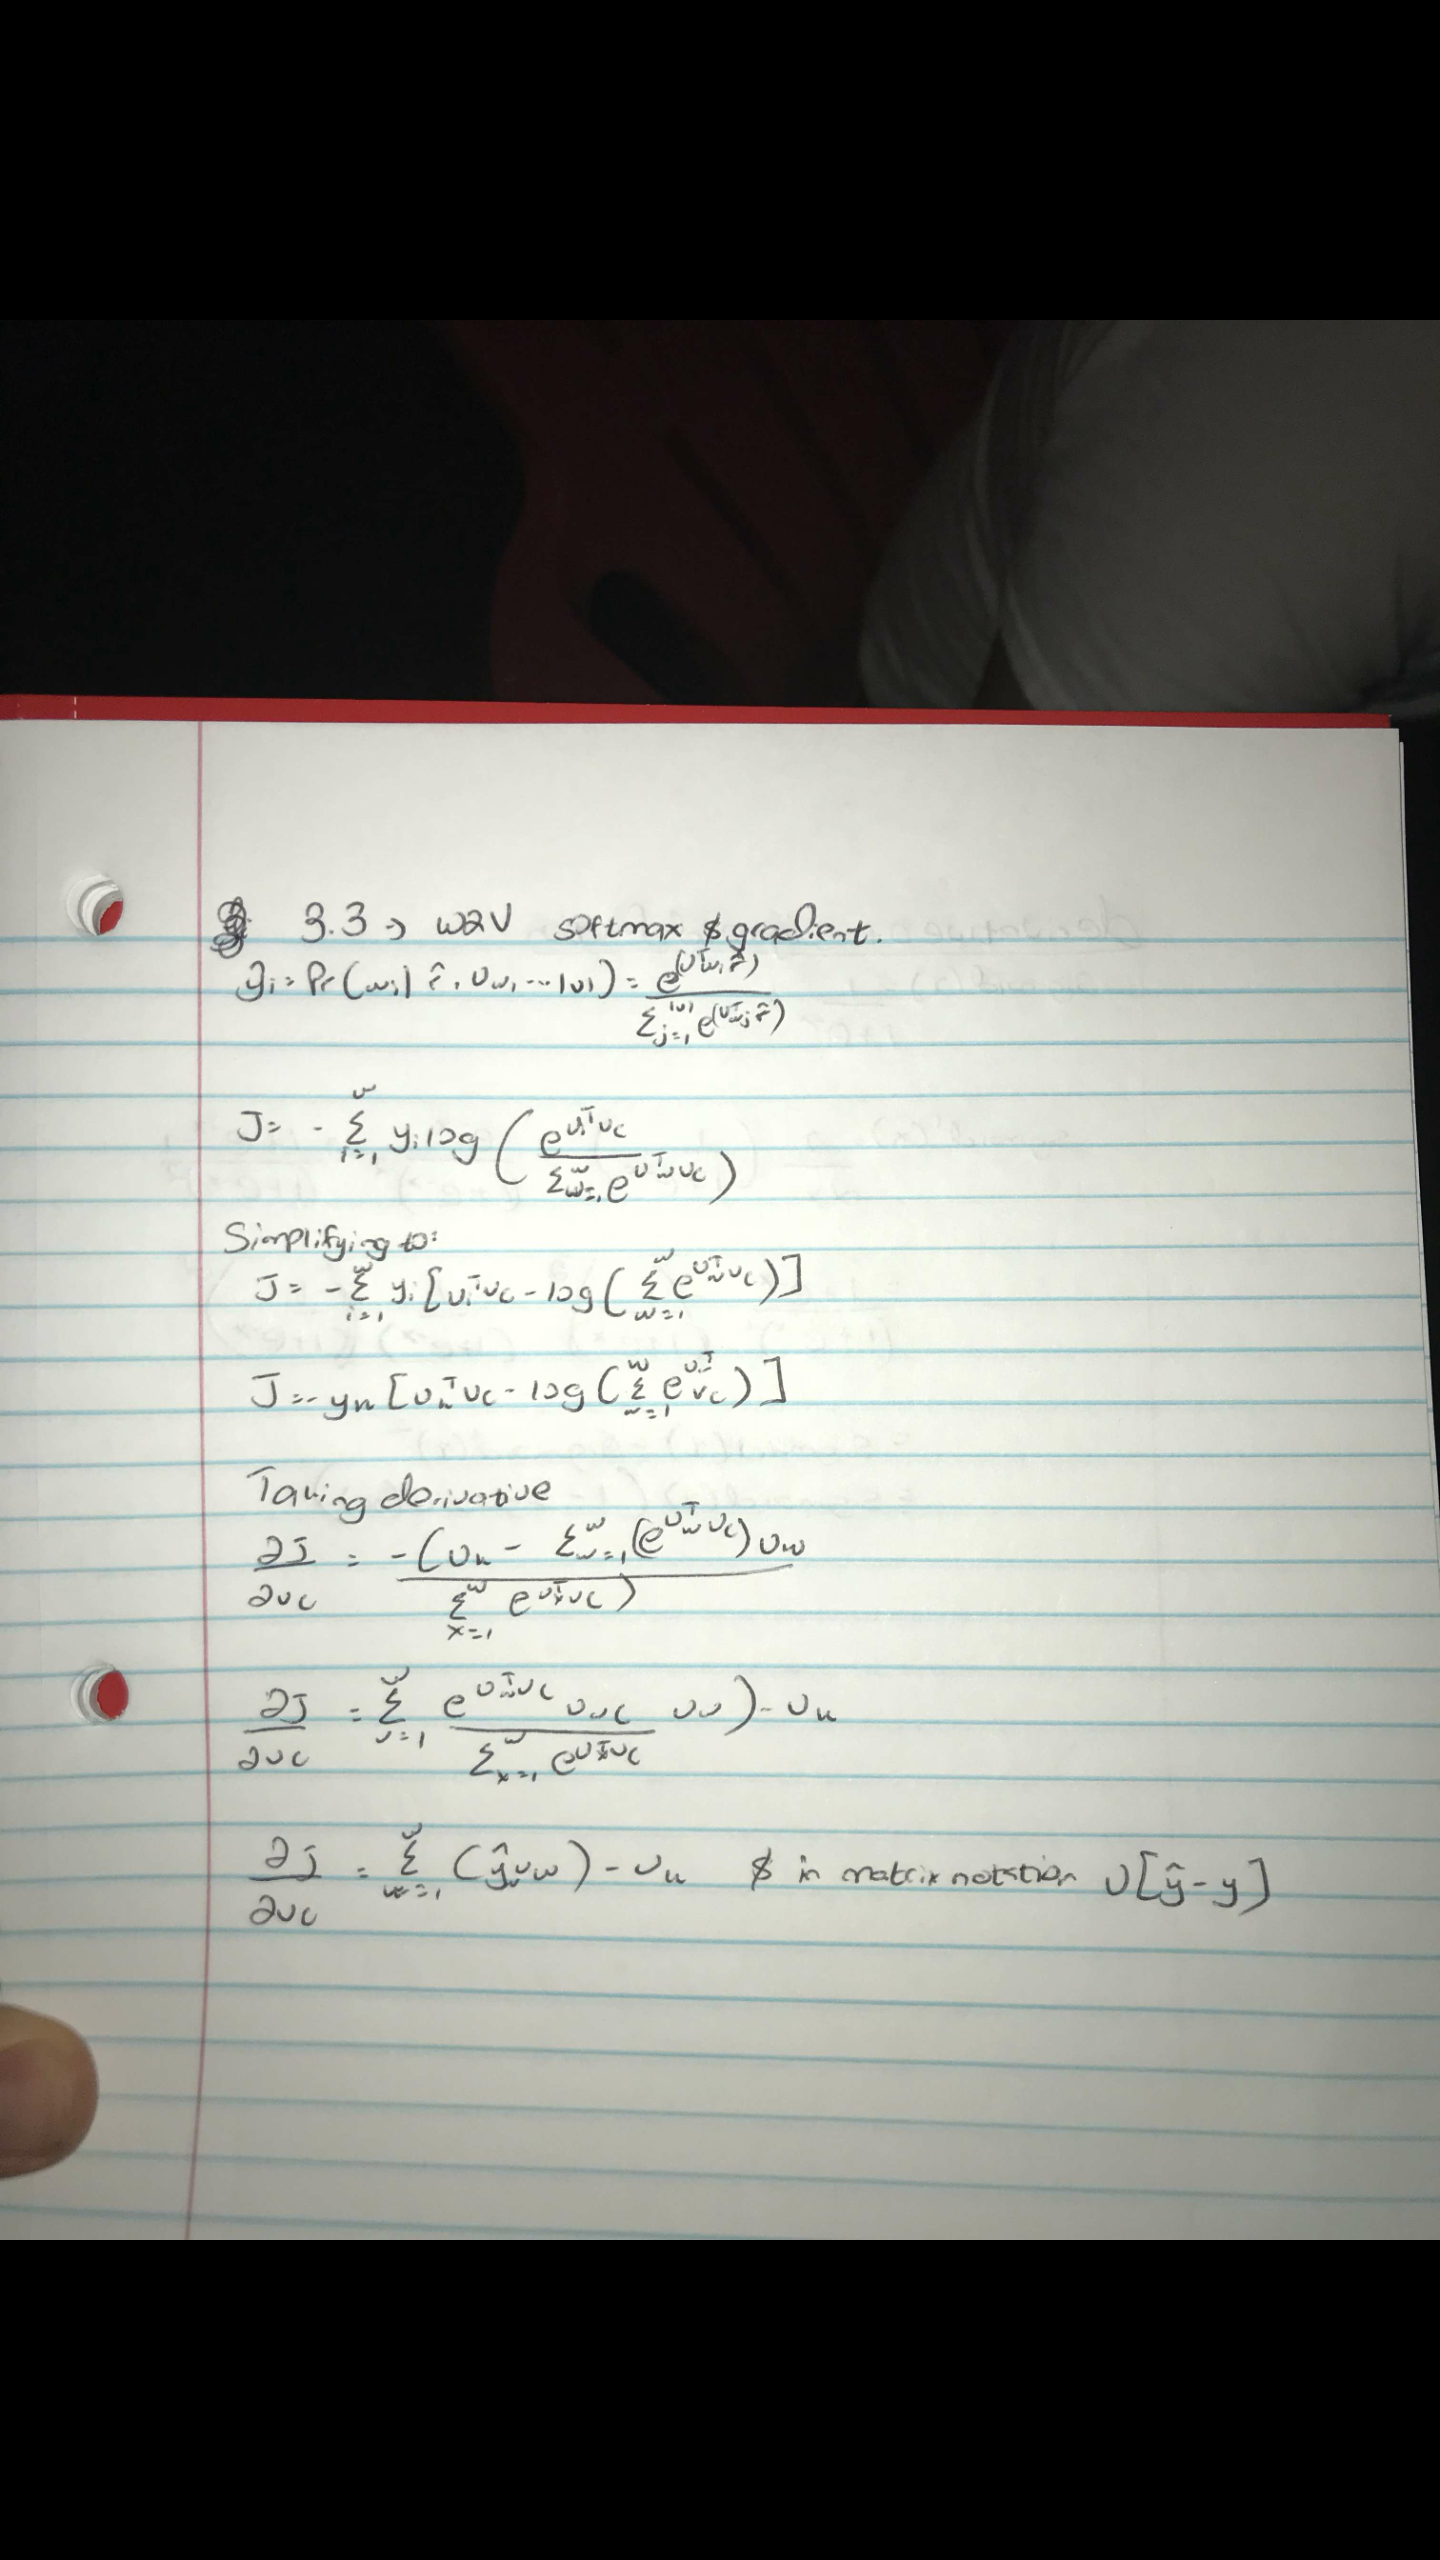 3.3 → W2V softmax & gradient.
ŷi = Pr(wi | r̂, Uw, ... |v|) = e^(U^T_wi r̂) / Σ_{j=1}^{|v|} e^(U^T_wj r̂)
J = - Σ_{i=1}^{w} yi log ( e^{ui^T vc} / Σ_{w=1}^{w} e^{uw^T vc} )
Simplifying to:
J = - Σ_{i=1}^{w} yi [ui^T vc - log( Σ_{w=1}^{w} e^{uw^T vc} )]
J = - yk [uk^T vc - log( Σ_{w=1}^{w} e^{uw^T vc} )]
Taking derivative
∂J/∂vc = -(uk - Σ_{w=1}^{w} (e^{uw^T vc}) uw / Σ_{x=1}^{w} e^{ux^T vc})
∂J/∂vc = Σ_{w=1}^{w} e^{uw^T vc} / Σ_{x=1}^{w} e^{ux^T vc} uw) - uk
∂J/∂vc = Σ_{w=1}^{w} (ŷw uw) - uk & in matrix notation U[ŷ - y]